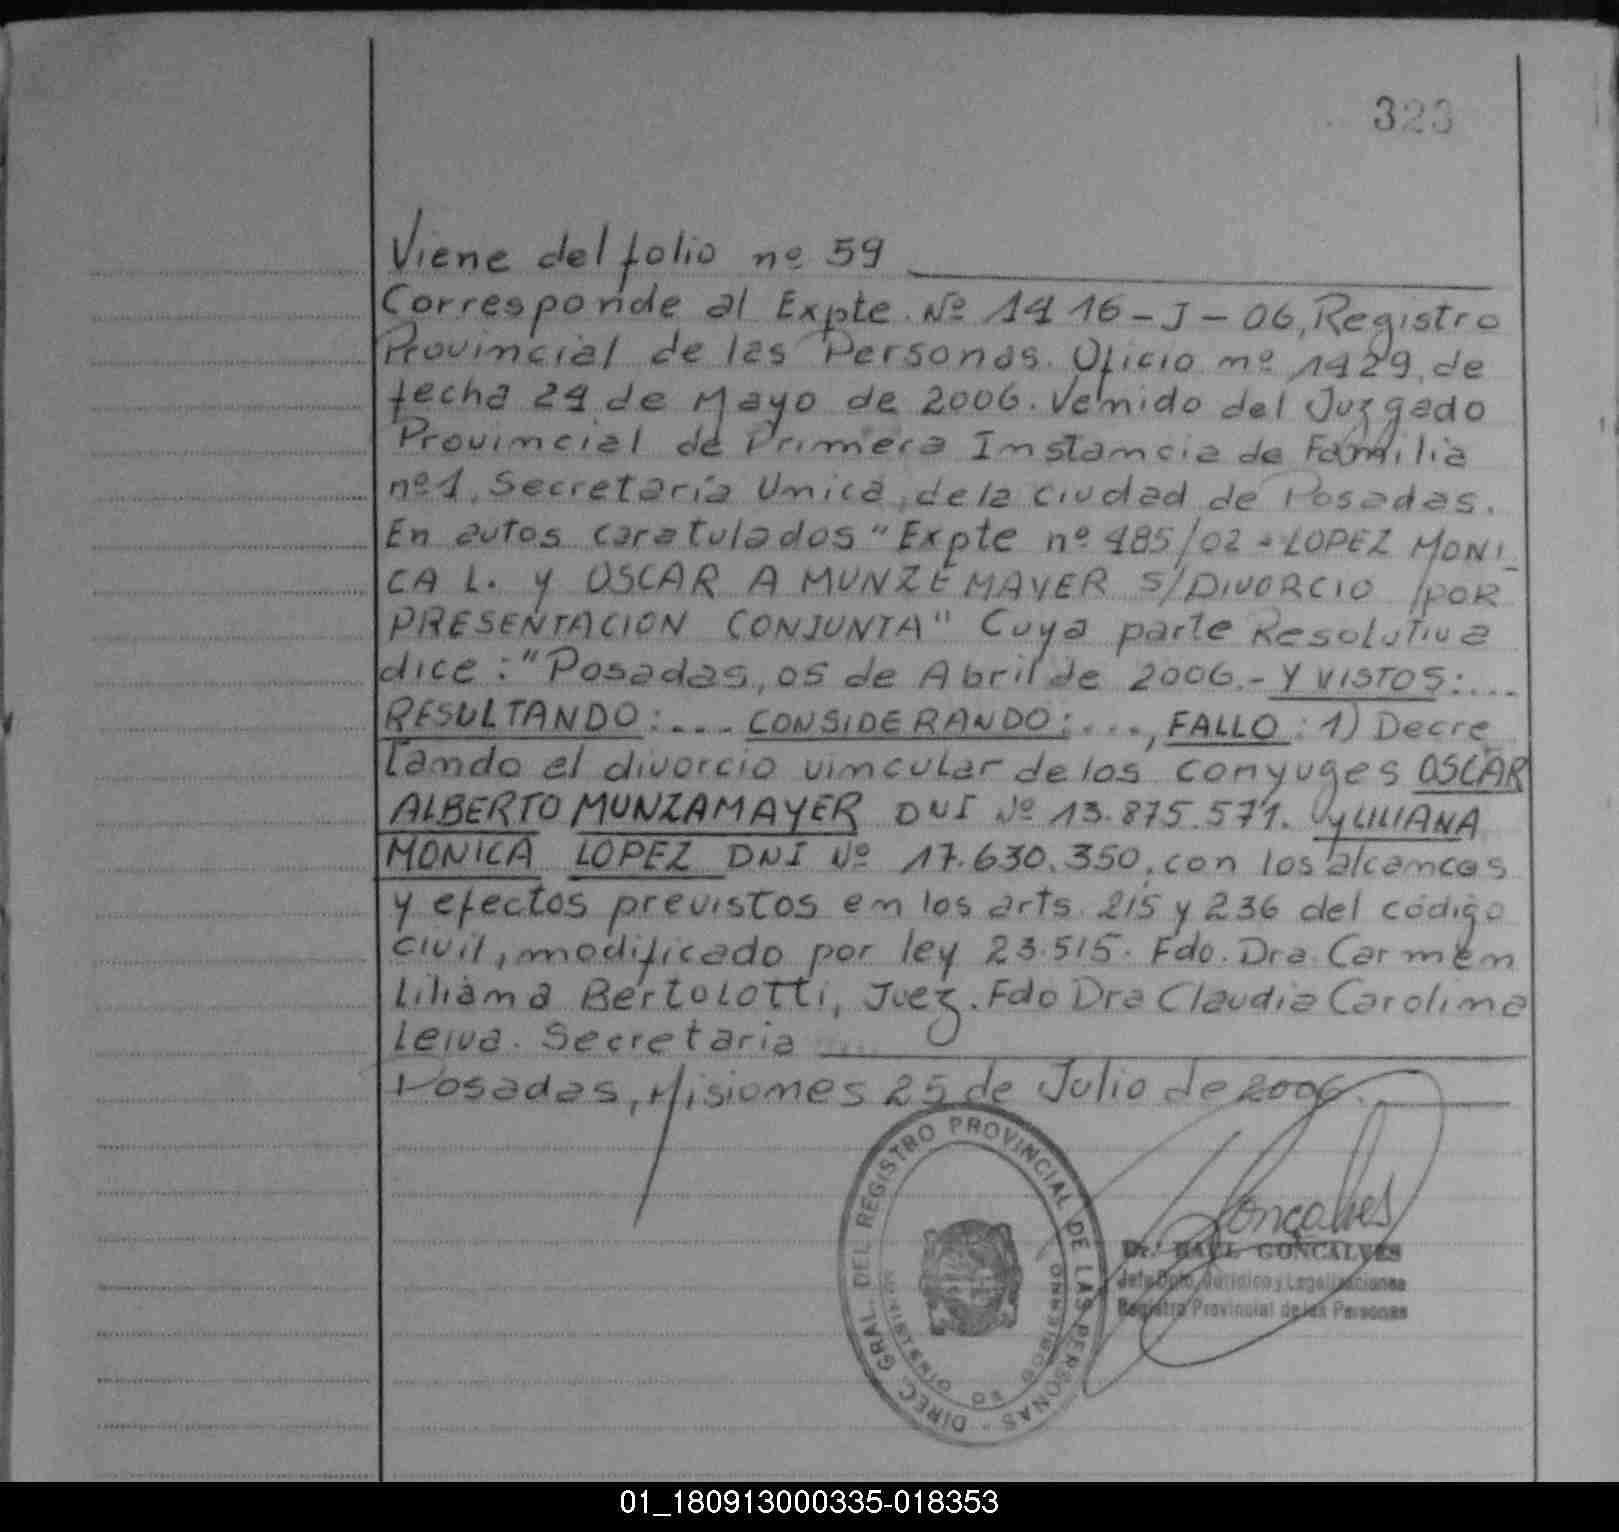 323
Viene del folio nº 59
Corresponde al Expte. Nº 1416-J-06, Registro
Provincial de las Personas. Oficio nº 1429, de
fecha 24 de Mayo de 2006. Venido del Juzgado
Provincial de Primera Instancia de Familia
nº1, Secretaría Unica, de la ciudad de Posadas.
En autos caratulados "Expte nº 485/02 - LOPEZ MONI_
CA L. y OSCAR A MUNZEMAYER S/DIVORCIO POR
PRESENTACION CONJUNTA" Cuya parte Resolutiva
dice: "Posadas, 05 de Abril de 2006.- Y VISTOS:....
RESULTANDO:.... CONSIDERANDO:...., FALLO: 1) Decre
tando el divorcio vincular de los conyuges OSCAR
ALBERTO MUNZAMAYER DNI Nº 13.875.571. y LILIANA
MONICA LOPEZ DNI Nº 17.630.350, con los alcances
y efectos previstos en los arts. 215 y 236 del código
civil, modificado por ley 23.515. Fdo. Dra. Carmen
Liliana Bertolotti, Juez. Fdo Dra Claudia Carolina
Leiva. Secretaria
Posadas, Misiones 25 de Julio de 2006.
DIREC. GRAL. DEL REGISTRO PROVINCIAL DE LAS PERSONAS
MINISTERIO DE GOBIERNO
Gonçalves
Dr. RAUL GONCALVES
Jefe Dpto. Jurídico y Legalizaciones
Registro Provincial de las Personas
01_180913000335-018353